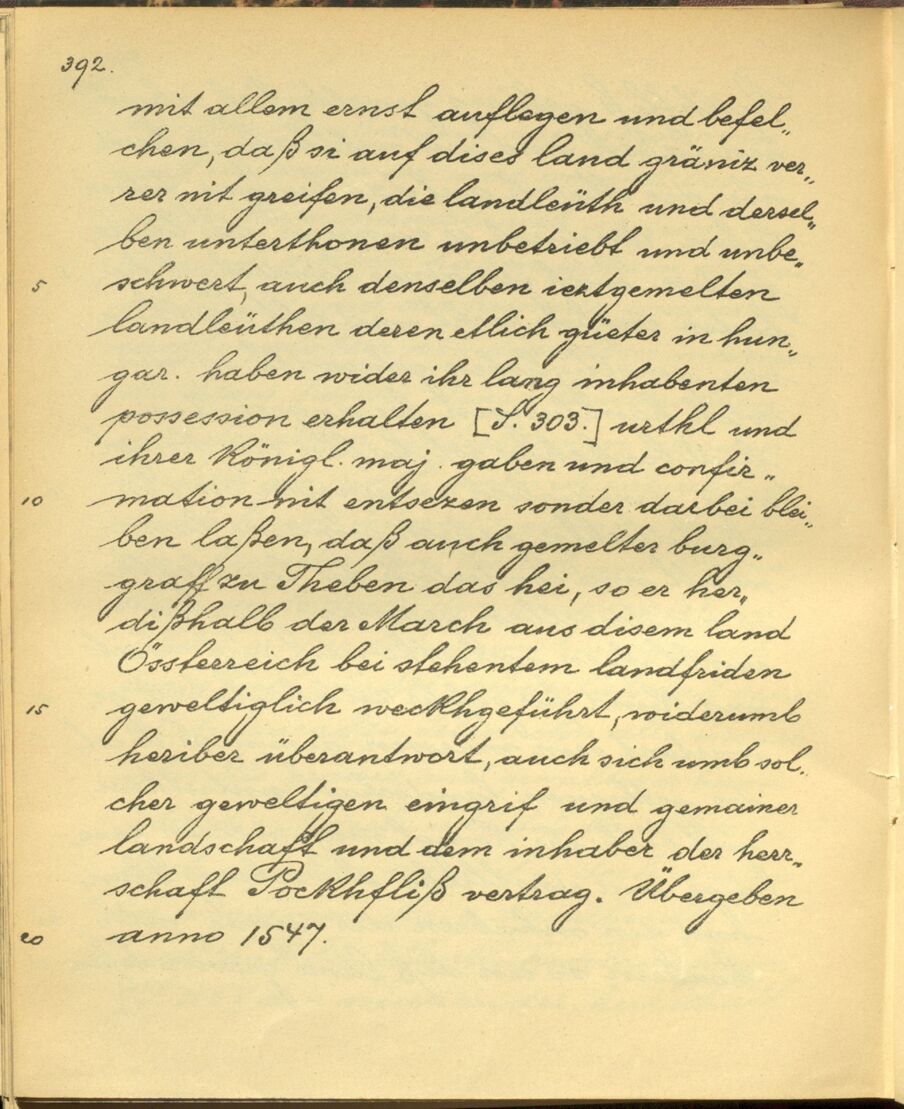 392.
mit allem ernst auflegen und befel„
chen, daß si auf dises land gräniz ver„
rer nit greifen, die landleüth und dersel„
ben unterthonen unbetriebt und unbe„
5 schwert, auch denselben ieztgemelten
landleüthen deren etlich güeter in hun„
gar. haben wider ihr lang inhabenten
possession erhalten [S. 303.] urthl und
ihrer Königl. maj. gaben und confir„
10 mation nit entsezen sonder darbei blei„
ben laßen, daß auch gemelter burg„
graff zu Theben das hei, so er her„
dißhalb der March aus disem land
Össterreich bei stehentem landfriden
15 geweltiglich weckhgeführt, widerumb
heriber überantwort, auch sich umb sol„
cher geweltigen eingrif und gemainer
landschaft und dem inhaber der herr„
schaft Pockhfliß vertrag. Übergeben
20 anno 1547.